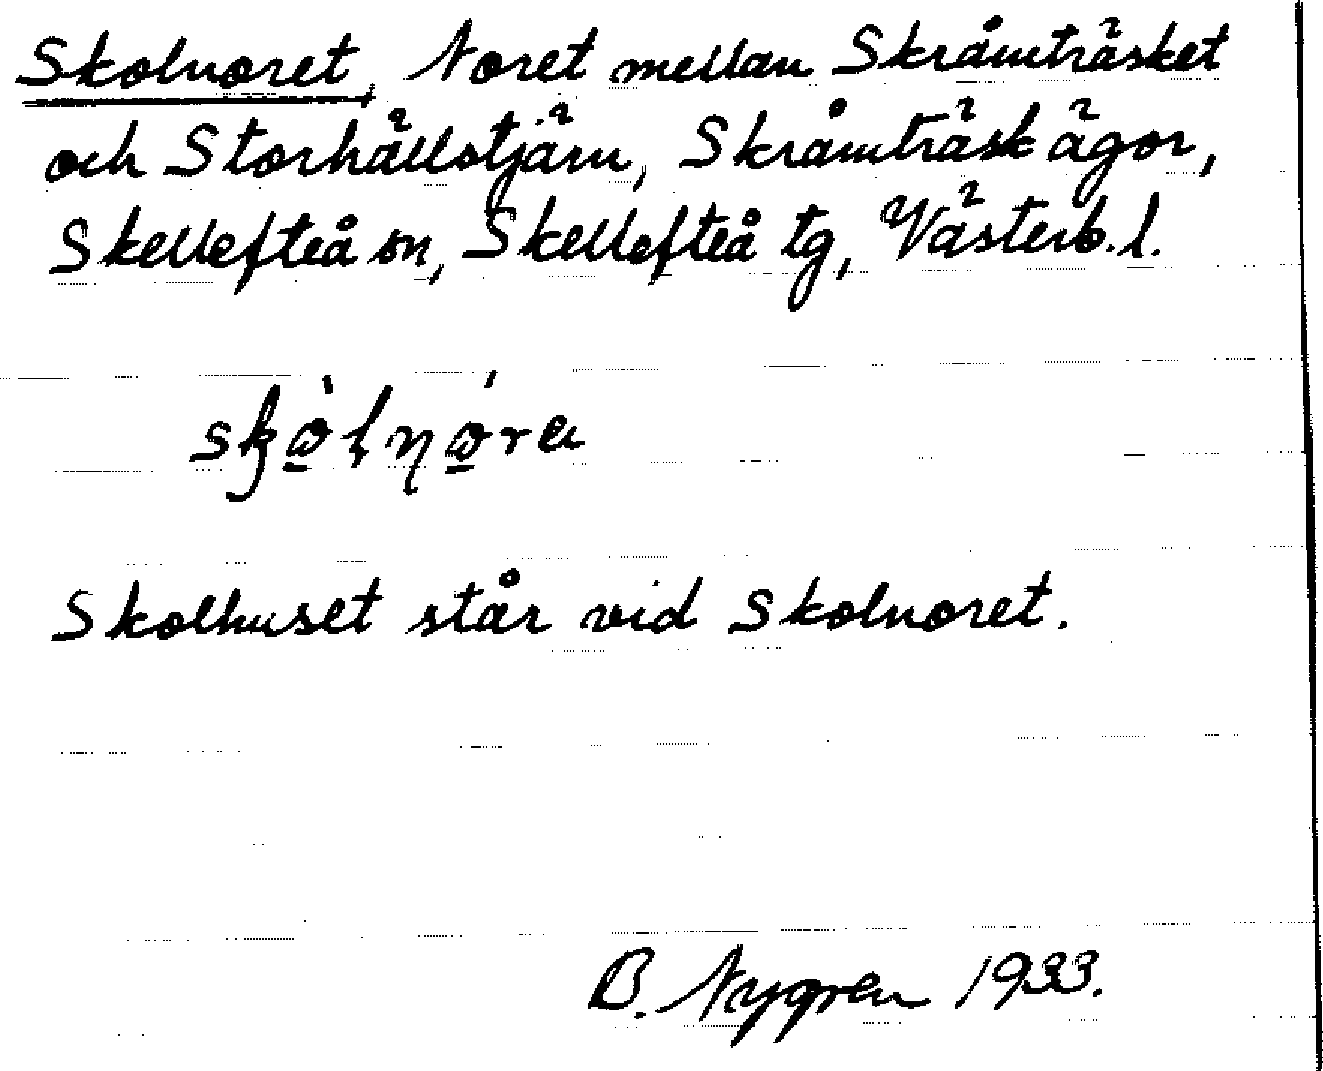 Skolnoret, Noret mellan Skråmträsket
och Storhällstjärn, Skråmträsk ägor,
Skellefteå sn, Skellefteå tg, Västerb. l.
Skolhuset står vid Skolnoret.
B. Nygren 1933.